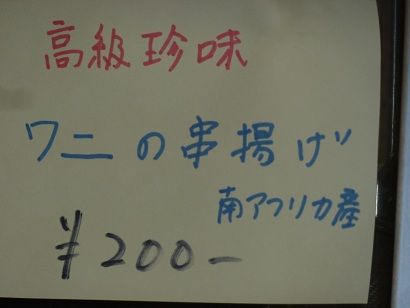 高級珍味
ワニの串揚げ
南アフリカ産
¥200-